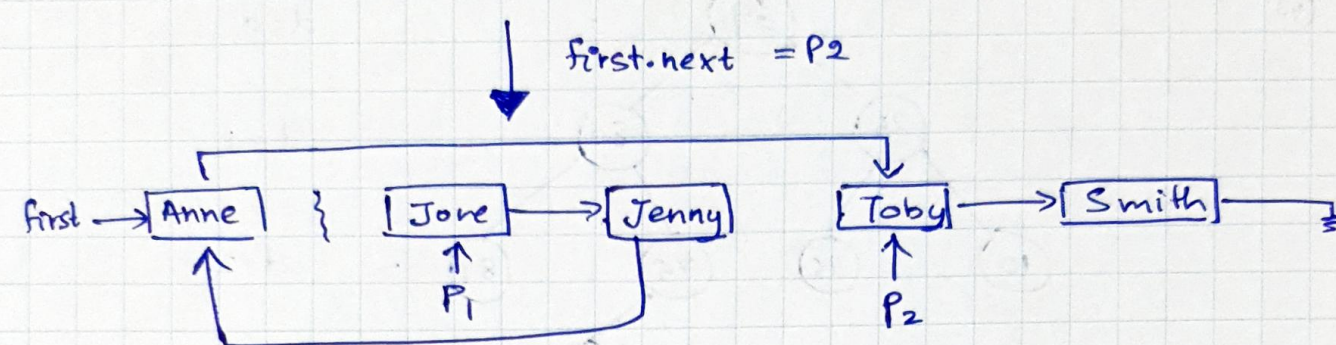 first.next = P2
first Anne Jore Jenny Toby Smith
P1 P2